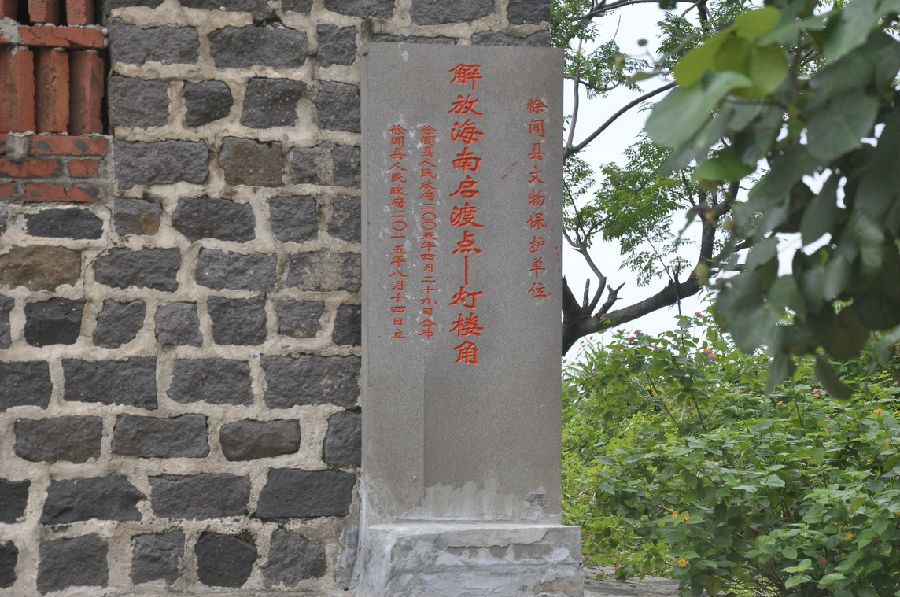 徐闻县文物保护单位
解放海南启渡点—灯楼角
徐闻县人民政府二〇〇五年四月二十九日公布
徐闻县人民政府二〇一五年八月十四日立